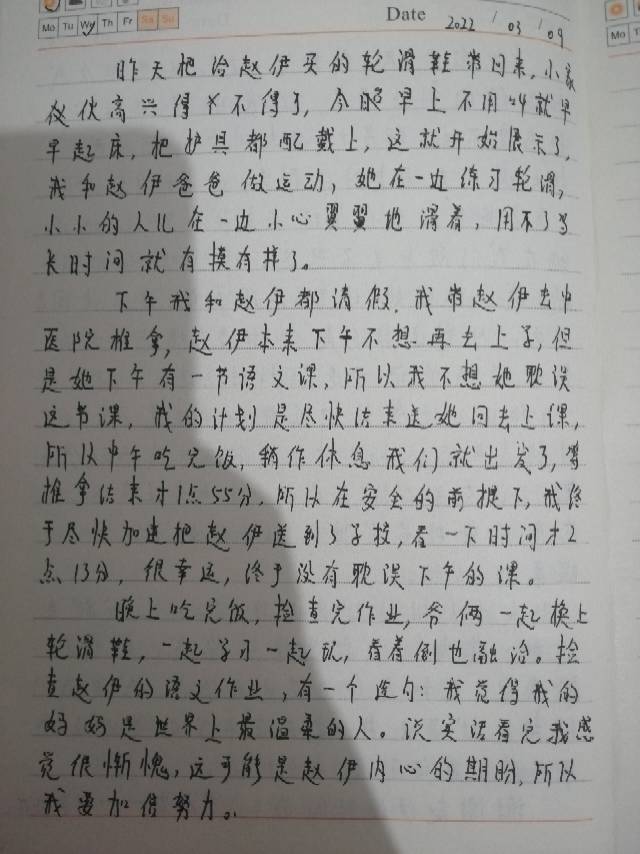 Mo Tu We Th Fr Sa Su
Date 2022 / 03 / 09
昨天把给赵伊买的轮滑鞋带回来,小家
伙伙高兴得不得了,今晚早上不用叫就早
早起床,把护具都配戴上,这就开始展示了,
我和赵伊爸爸做运动,她在一边练习轮滑,
小小的人儿在一边小心翼翼地滑着,用不了多
长时间就有模有样了。
下午我和赵伊都请假,我带赵伊去中
医院推拿,赵伊本来下午不想再去上学,但
是她下午有一节语文课,所以我不想她耽误
这节课,我的计划是尽快结束送她回去上课,
所以中午吃完饭,稍作休息我们就出发了,等
推拿结束才1点55分,所以在安全的前提下,我终
于尽快加速把赵伊送到了学校,看一下时间才2
点13分,很幸运,终于没有耽误下午的课。
晚上吃完饭,检查完作业,爷俩一起换上
轮滑鞋,一起学习一起玩,看着倒也融洽。检
查赵伊的语文作业,有一个造句:我觉得我的
妈妈是世界上最温柔的人。说实话看完我感
觉很惭愧,这可能是赵伊内心的期盼,所以
我要加倍努力。
Mo